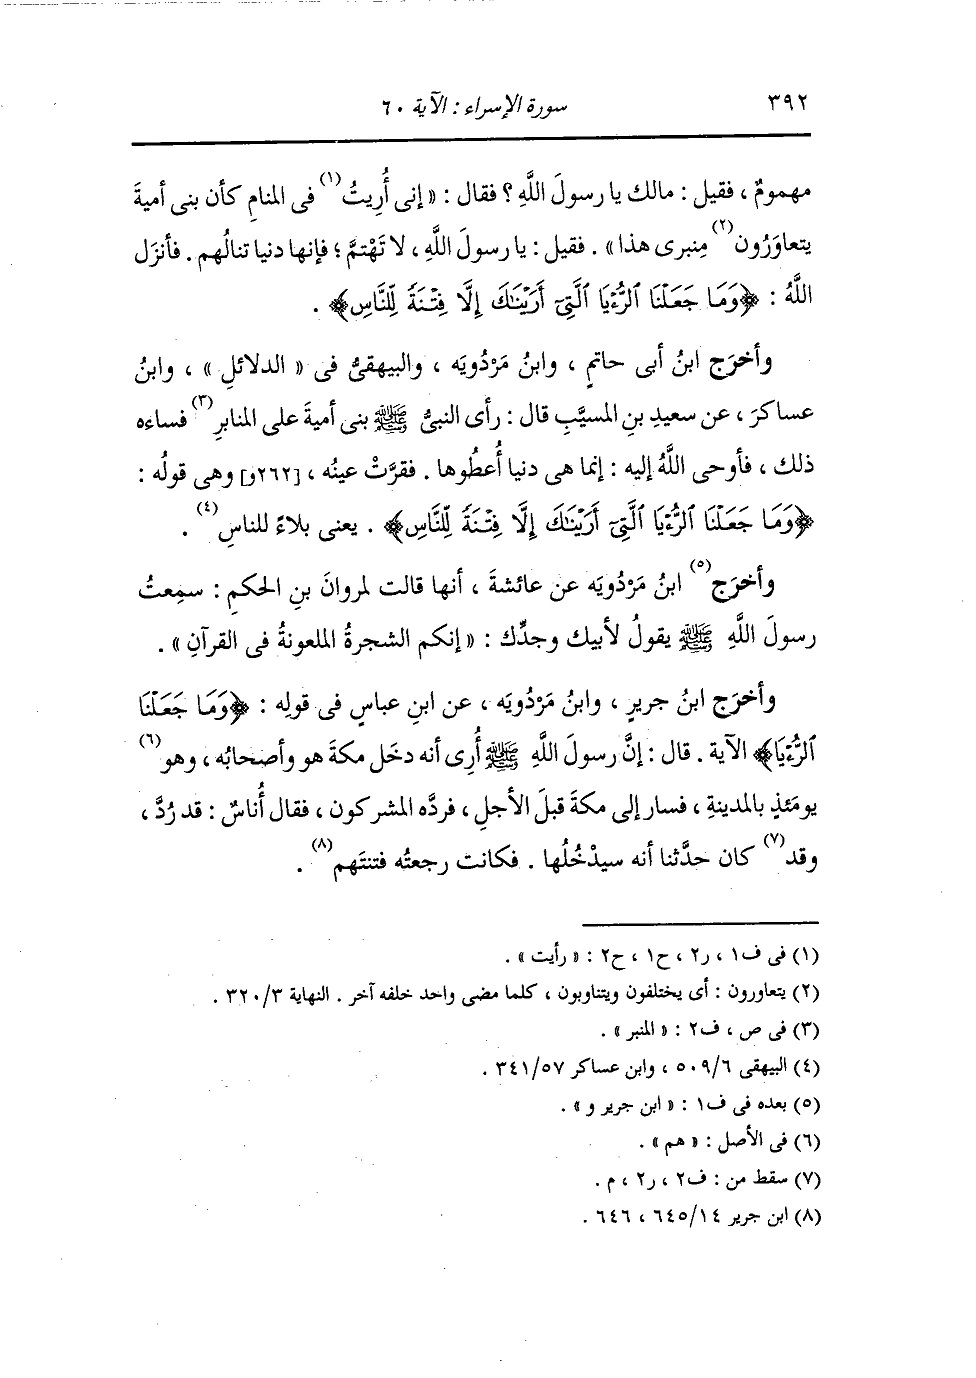 ٣٩٢
سورة الإسراء : الآية ٦٠
مهمومٌ ، فقيل : مالك يا رسولَ اللَّهِ ؟ فقال : « إنى أُرِيتُ (١) فى المنامِ كأن بنى أميةَ
يتعاوَرُون (٢) مِنبرى هذا » . فقيل : يا رسولَ اللَّهِ ، لا تَهْتمَّ ؛ فإنها دنيا تنالُهم . فأنزَل
اللَّهُ : ﴿وَمَا جَعَلْنَا ٱلرُّءْيَا ٱلَّتِىٓ أَرَيْنَـٰكَ إِلَّا فِتْنَةً لِّلنَّاسِ﴾ .
وأخرَج ابنُ أبى حاتمٍ ، وابنُ مَرْدُويَه ، والبيهقىُّ فى « الدلائلِ » ، وابنُ
عساكرَ ، عن سعيدِ بنِ المسيَّبِ قال : رأى النبىُّ ﷺ بنى أميةَ على المنابرِ (٣) فساءه
ذلك ، فأوحى اللَّهُ إليه : إنما هى دنيا أُعطُوها . فقرَّتْ عينُه ، [٢٦٢و] وهى قولُه :
﴿وَمَا جَعَلْنَا ٱلرُّءْيَا ٱلَّتِىٓ أَرَيْنَـٰكَ إِلَّا فِتْنَةً لِّلنَّاسِ﴾ . يعنى بلاءً للناسِ (٤) .
وأخرَج (٥) ابنُ مَرْدُويَه عن عائشةَ ، أنها قالت لمروانَ بنِ الحكمِ : سمِعتُ
رسولَ اللَّهِ ﷺ يقولُ لأبيك وجدِّك : « إنكم الشجرةُ الملعونةُ فى القرآنِ » .
وأخرَج ابنُ جريرٍ ، وابنُ مَرْدُويَه ، عن ابنِ عباسٍ فى قولِه : ﴿وَمَا جَعَلْنَا
ٱلرُّءْيَا﴾ الآية . قال : إنَّ رسولَ اللَّهِ ﷺ أُرِى أنه دخَل مكةَ هو وأصحابُه ، وهو (٦)
يومَئذٍ بالمدينةِ ، فسار إلى مكةَ قبلَ الأجلِ ، فردَّه المشركون ، فقال أُناسٌ : قد رُدَّ ،
وقد (٧) كان حدَّثنا أنه سيدْخُلُها . فكانت رجعتُه فتنتَهم (٨) .
(١) فى ف١ ، ر٢ ، ح١ ، ح٢ : « رأيت » .
(٢) يتعاورون : أى يختلفون ويتناوبون ، كلما مضى واحد خلفه آخر . النهاية ٣/ ٣٢٠ .
(٣) فى ص ، ف٢ : « المنبر » .
(٤) البيهقى ٦/ ٥٠٩ ، وابن عساكر ٥٧/ ٣٤١ .
(٥) بعده فى ف١ : « ابن جرير و » .
(٦) فى الأصل : « هم » .
(٧) سقط من : ف٢ ، ر٢ ، م .
(٨) ابن جرير ١٤/ ٦٤٥ ، ٦٤٦ .